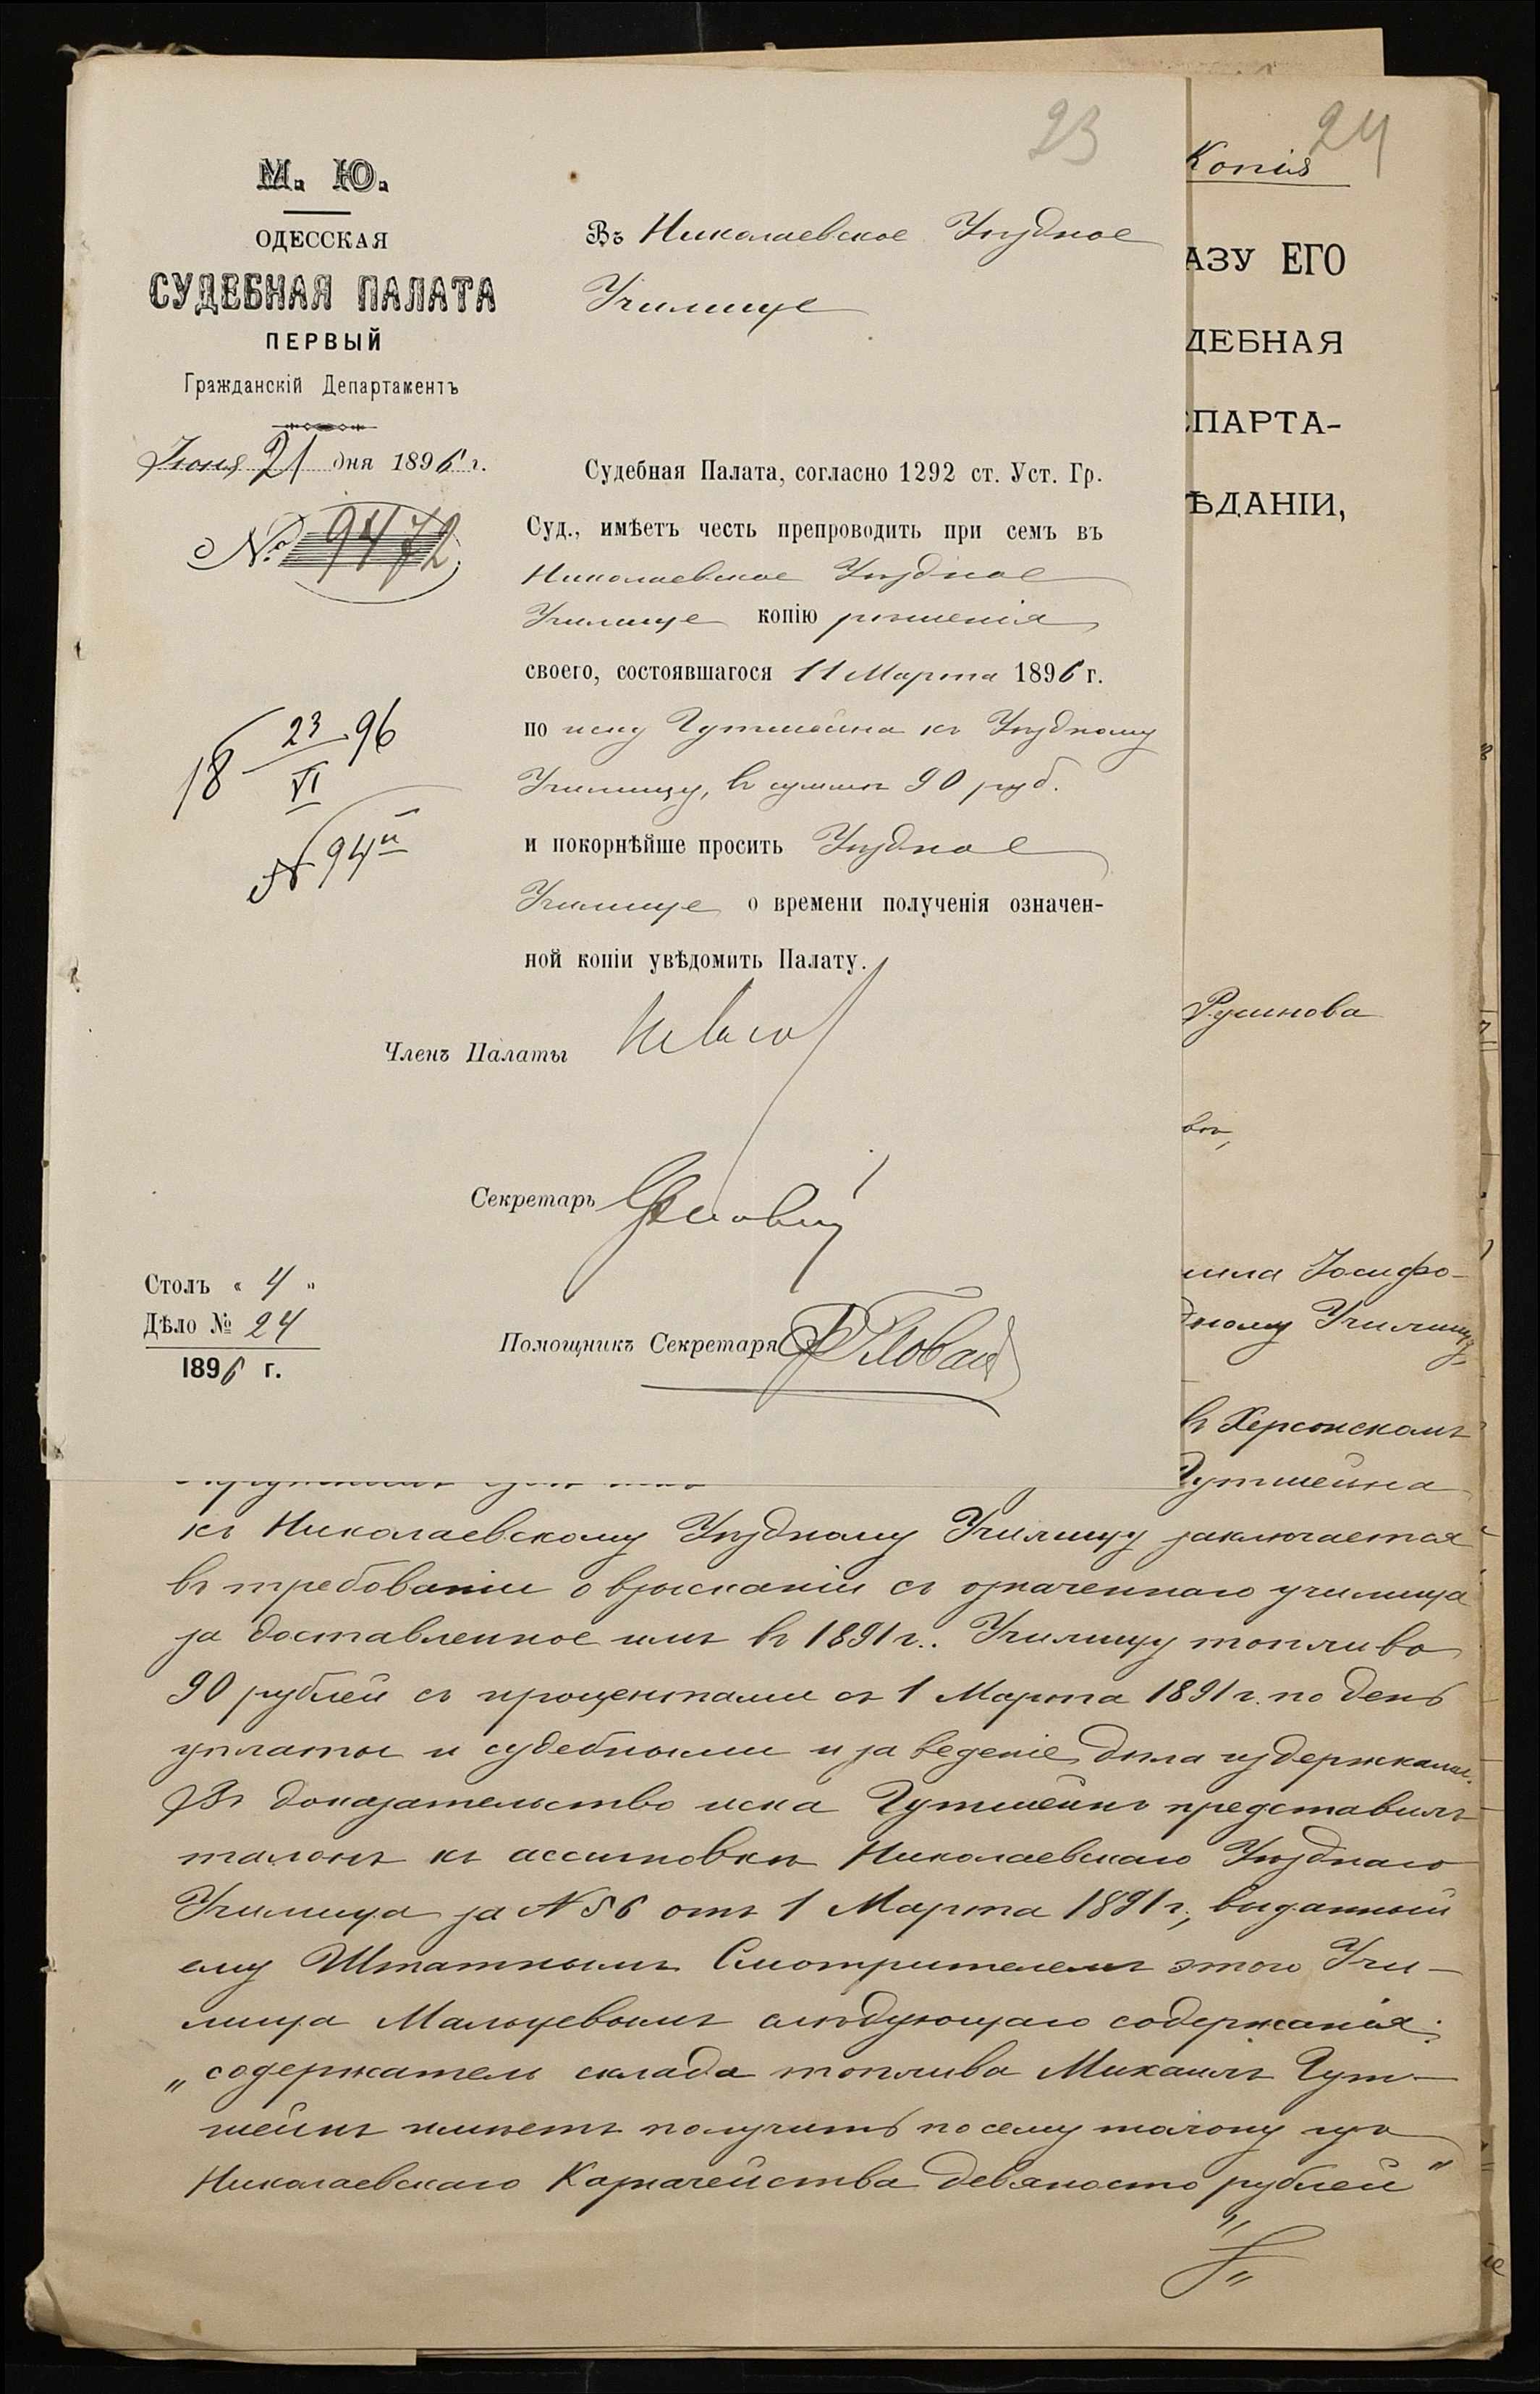 23
М. Ю.
ОДЕССКАЯ
СУДЕБНАЯ ПАЛАТА
ПЕРВЫЙ
Гражданскій Департаментъ
Іюня 21 дня 1896 г.
№ 9472
18 23/VI 96
№ 94
Въ Николаевское Уѣздное
Училище
Судебная Палата, согласно 1292 ст. Уст. Гр.
Суд., имѣетъ честь препроводить при семъ въ
Николаевское Уѣздное
Училище копію рѣшенія
своего, состоявшагося 11 Марта 1896 г.
по иску Гутшейна къ Уѣздному
Училищу, въ суммѣ 90 руб.
и покорнѣйше просить Уѣздное
Училище о времени полученія означен-
ной копіи увѣдомить Палату.
Членъ Палаты
Секретарь
Помощникъ Секретаря
Столъ « 4 "
Дѣло № 24
1896 г.
24
Копія
АЗУ ЕГО
ДЕБНАЯ
ПАРТА-
ѢДАНІИ,
Русинова
въ,
ила Іосифо-
дному Училищу
въ Херсонскомъ
Гутшейна
къ Николаевскому Уѣздному Училищу заключается
въ требованіи о взысканіи съ означеннаго училища
за доставленное имъ въ 1891 г. Училищу топливо
90 рублей съ процентами съ 1 Марта 1891 г. по день
уплаты и судебными и за веденіе дѣла издержками.
Въ доказательство иска Гутшейнъ представилъ
талонъ къ ассигновкѣ Николаевскаго Уѣзднаго
Училища за № 56 отъ 1 Марта 1891 г., выданный
ему Штатнымъ Смотрителемъ этого Учи-
лища Мальцевымъ слѣдующаго содержанія:
„содержатель склада топлива Михаилъ Гут-
шейнъ имѣетъ получить по сему талону изъ
Николаевскаго Казначейства девяносто рублей"